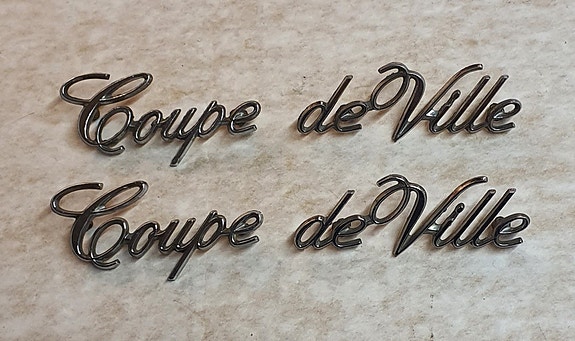 Coupe de Ville
Coupe de Ville